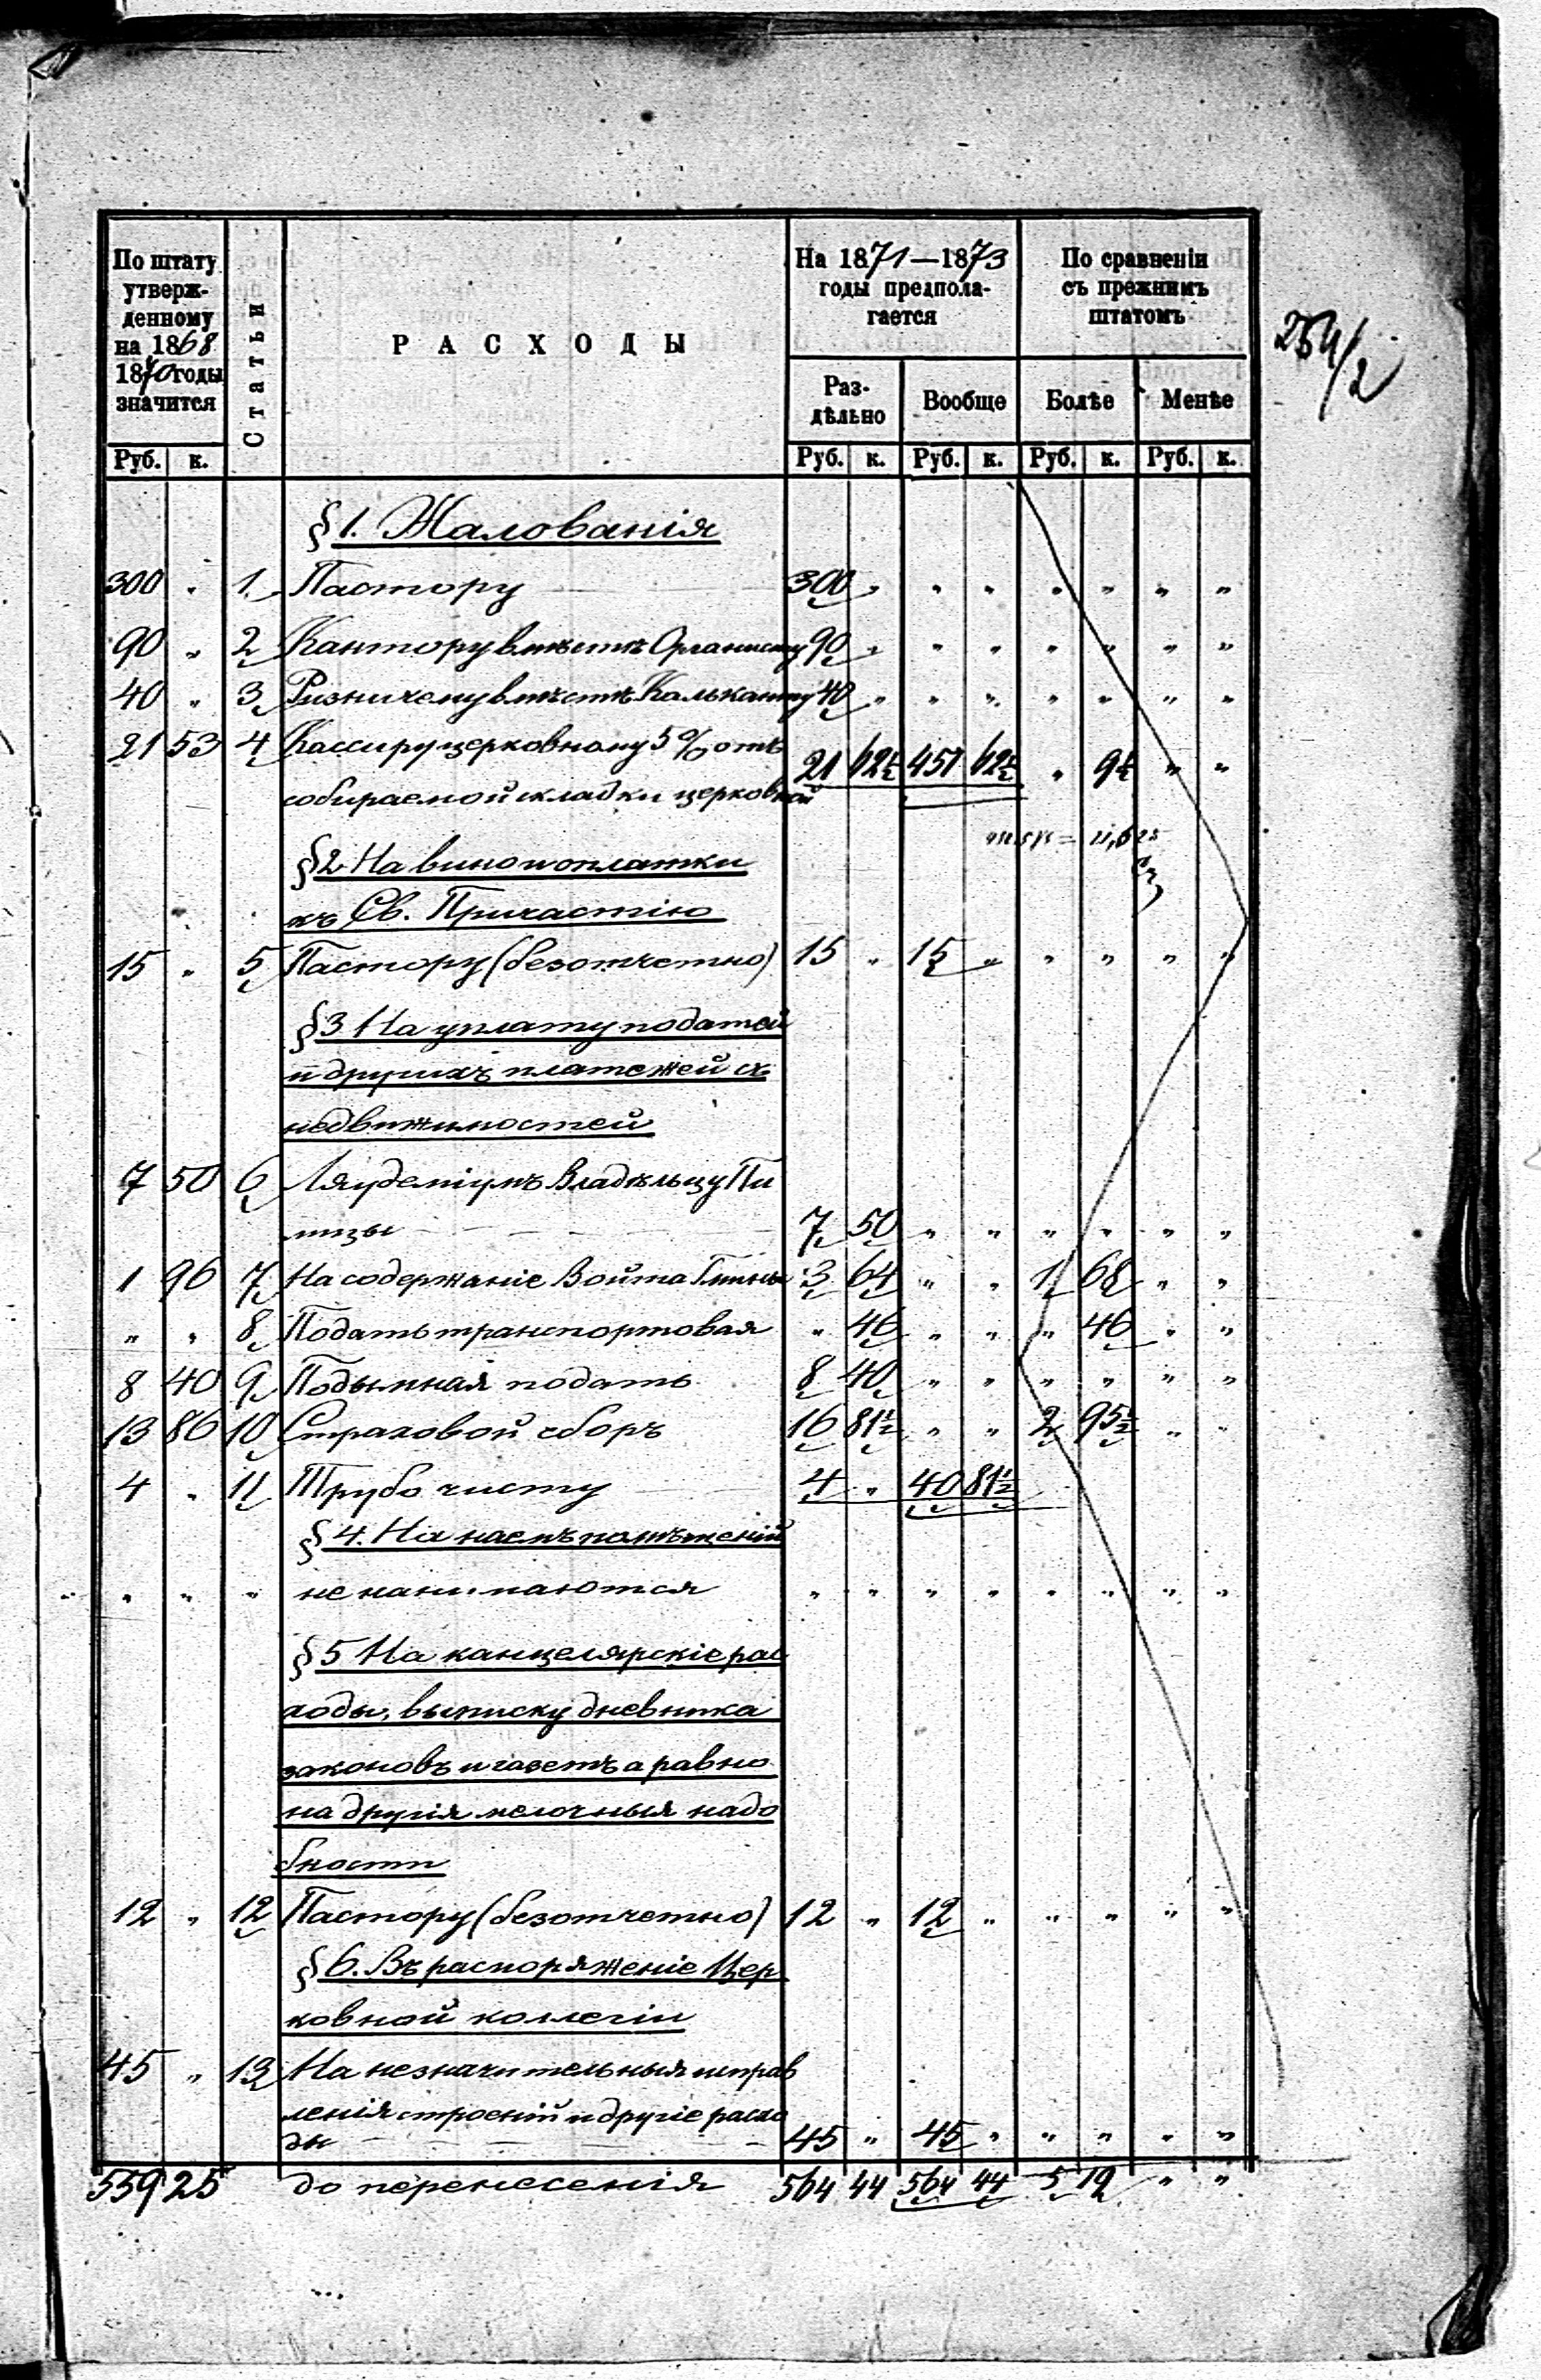 254/2
По штату утверж- денному на 1868 1870 годы значится
Статьи
РАСХОДЫ
На 1871—1873 годы предпола- гается
По сравненіи съ прежнимъ штатомъ
Раз- дѣльно Вообще Болѣе Менѣе
Руб. к. Руб. к. Руб. к. Руб. к. Руб. к.
§ 1. Жалованія
300 „ 1. Пастору 300 „ „ „ „ „ „ „
90 „ 2 Кантору вмѣстѣ Органисту 90 „ „ „ „ „ „ „
40 „ 3 Ризничему вмѣстѣ Калькантну 40 „ „ „ „ „ „ „
21 53 4 Кассиру церковному 5% отъ
собираемой складки церковной 21 62½ 451 62½ „ 9½ „ „
§2 На вино и оплатки
къ Св. Причастію
15 „ 5 Пастору (безотчетно) 15 „ 15 „ „ „ „ „
§3 На уплату податей
и другихъ платежей съ
недвижимостей
7 50 6 Ляудеміумъ Владѣльцу Пи
лицы 7 50 „ „ „ „ „ „
1 96 7 На содержаніе Войта Гмины 3 64 „ „ 1 68 „ „
„ „ 8 Подать транспортовая „ 46 „ „ „ 46 „ „
8 40 9 Подымная подать 8 40 „ „ „ „ „ „
13 86 10 Страховой сборъ 16 81½ „ „ 2 95½ „ „
4 „ 11 Трубочисту 4 „ 40 81½
§ 4. На наемъ помѣщеній
„ „ „ не нанимаются „ „ „ „ „ „ „ „
§ 5 На канцелярскіе рас
ходы, выписку дневника
законовъ и газетъ а равно
на другія мелочныя надо
бности
12 „ 12 Пастору (безотчетно) 12 „ 12 „ „ „ „ „
§ 6. Въ распоряженіе Цер
ковной коллегіи
45 „ 13 На незначительныя исправ
ленія строеній и другіе расхо
ды 45 „ 45 „ „ „ „ „
559 25 до перенесенія 564 44 564 44 5 19 „ „